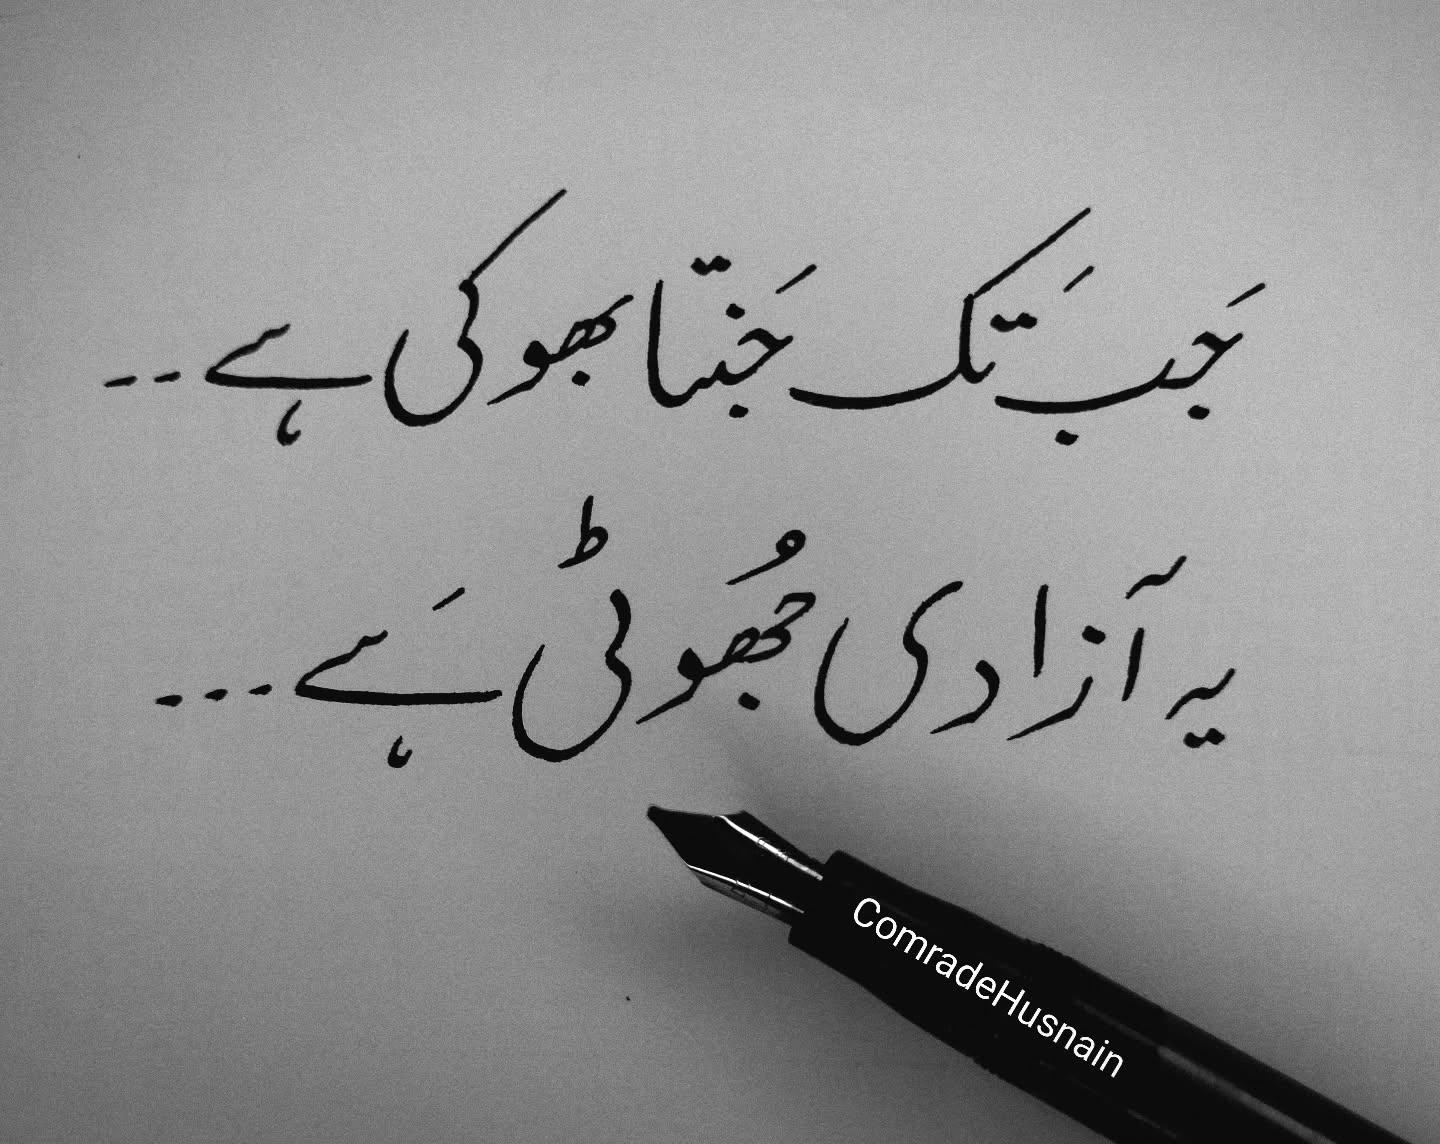 جَب تَک جَنتا بھوکی ہے--
یہ آزادی جُھوٹی ہَے---
ComradeHusnain